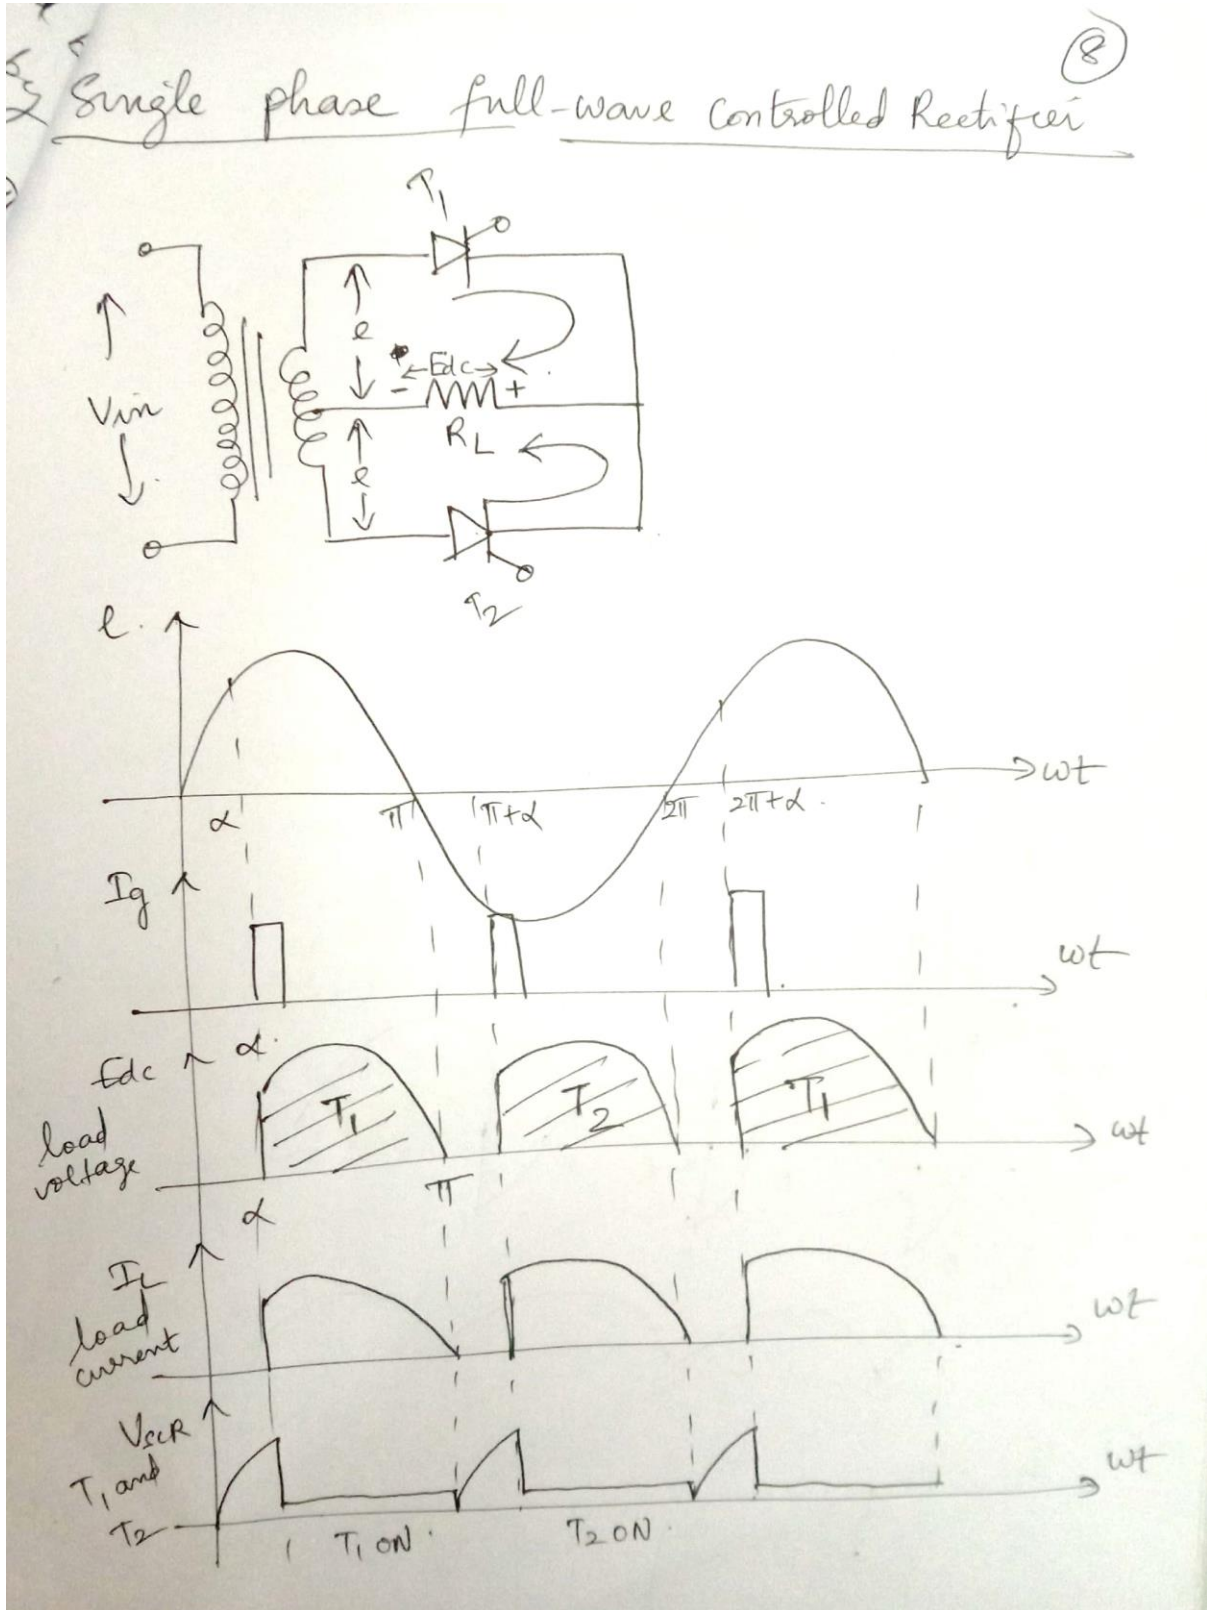 8
Single phase full-wave controlled Rectifier
T1
Vin
e
Edc
- +
RL
e
T2
e.
ωt
α π π+α 2π 2π+α.
Ig
ωt
α.
Edc
load
voltage
T1 T2 T1
ωt
α π
IL
load
current
ωt
VSCR
T1 and
T2
ωt
T1 ON. T2 ON.